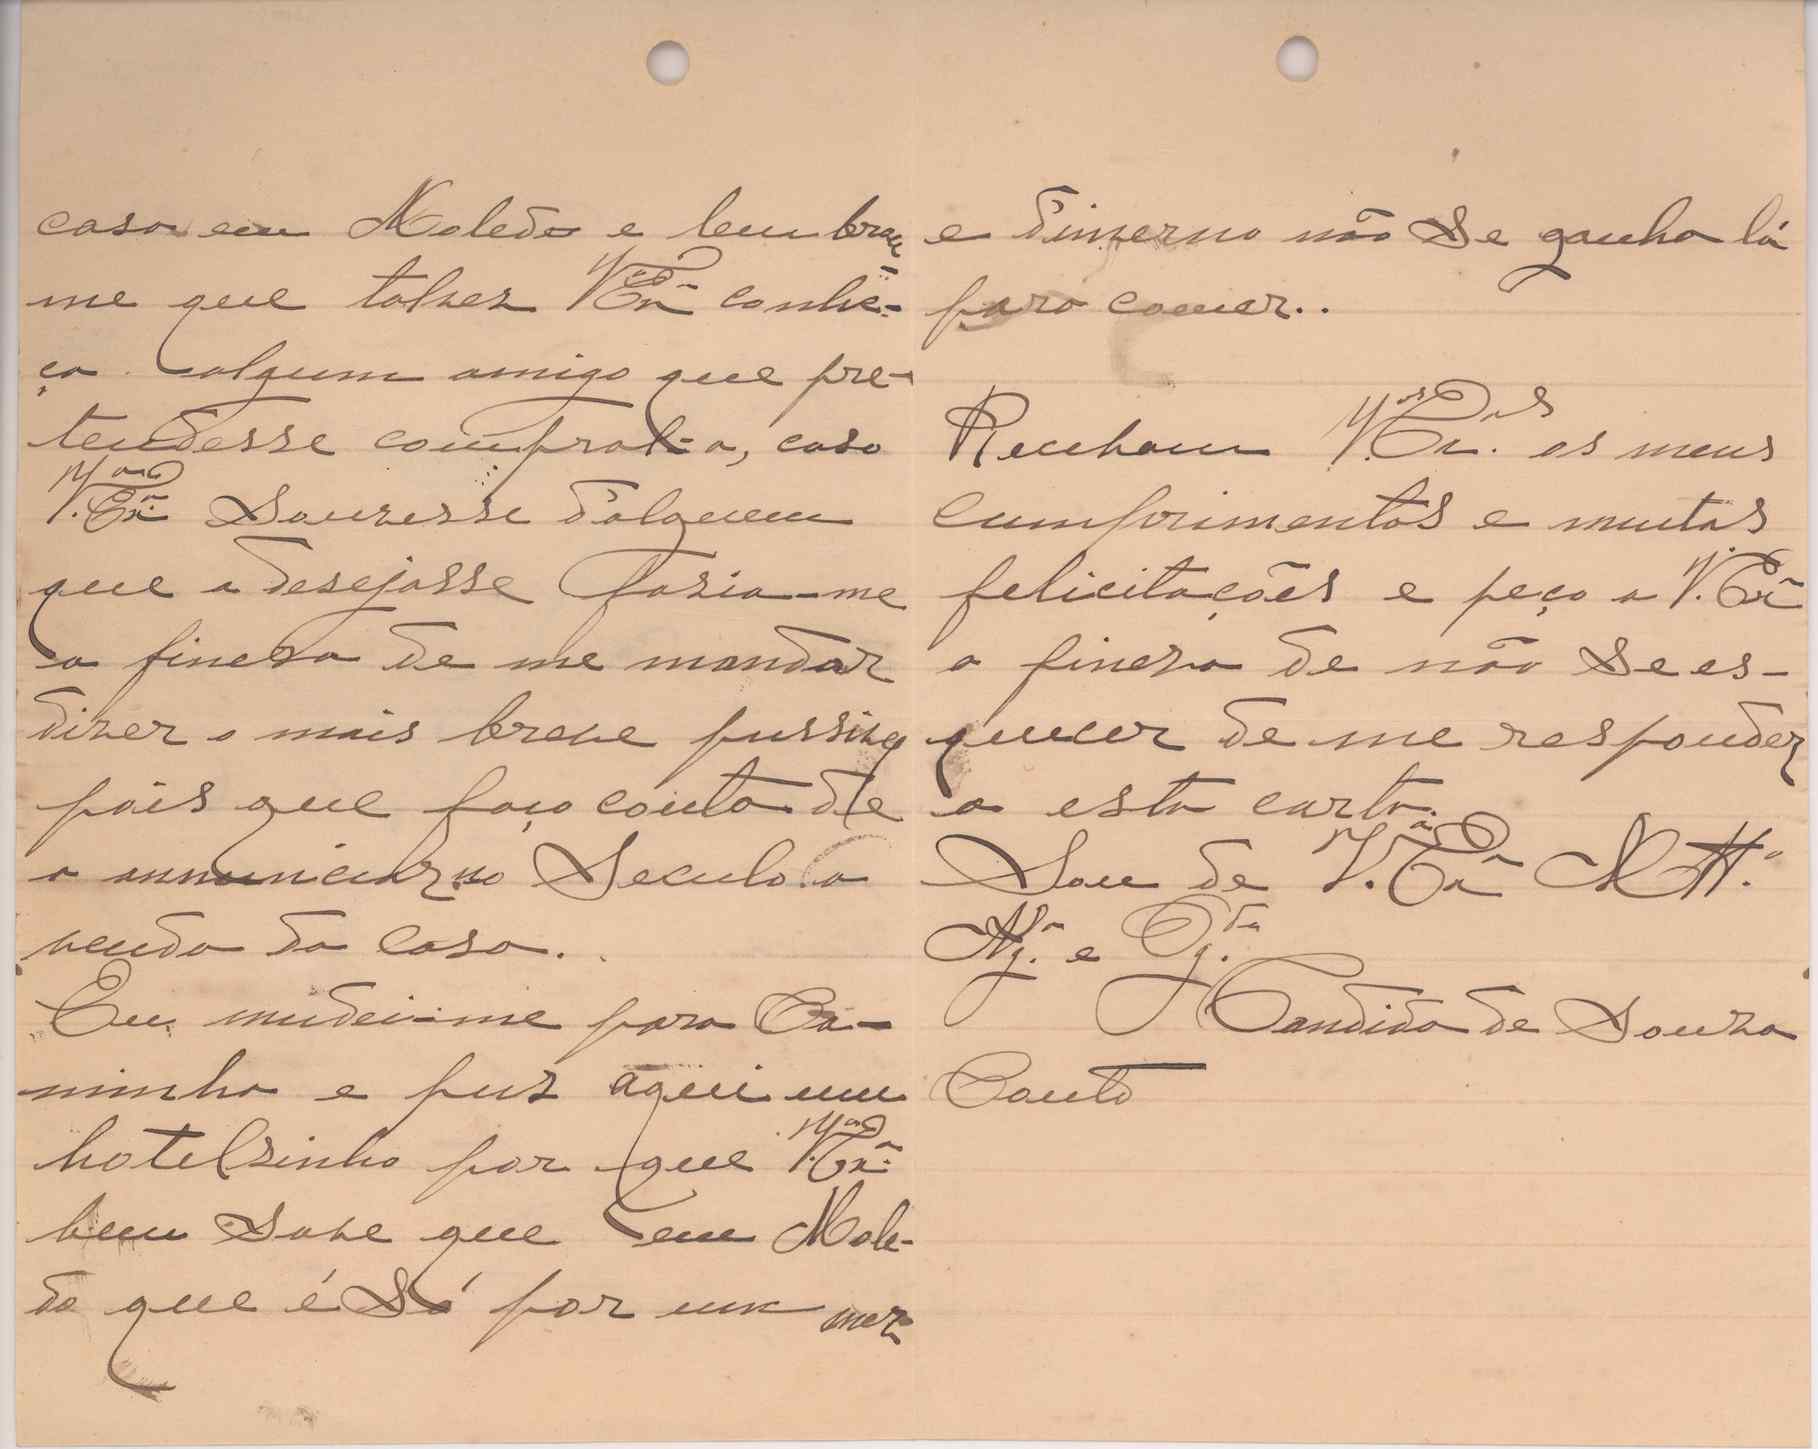 casa em Moledo e lembrou
me que talves V. Exª conhe-
ça algum amigo que pre-
tendesse compral-a, caso
V. Exª Souvesse d'alguem
que a desejasse fasia-me
a fineza de me mandar
dizer o mais breve pussivel
pois que faço conta de
a annunciar no Seculo a
venda da casa.
Eu mudei-me para Ca-
minha e puz aqui um
hotelsinho por que V. Exª
bem Sabe que em Mole-
do que é Só por um mez
e d'inverno não Se ganha lá
para comer..
Recebam V. Exªs os meus
cumprimentos e muitas
felicitações e peço a V. Exª
a fineza de não Se es-
quecer de me responder
a esta carta.
Sou de V. Exª Mtº
Atª e Obgda
Candida de Souza
Couto